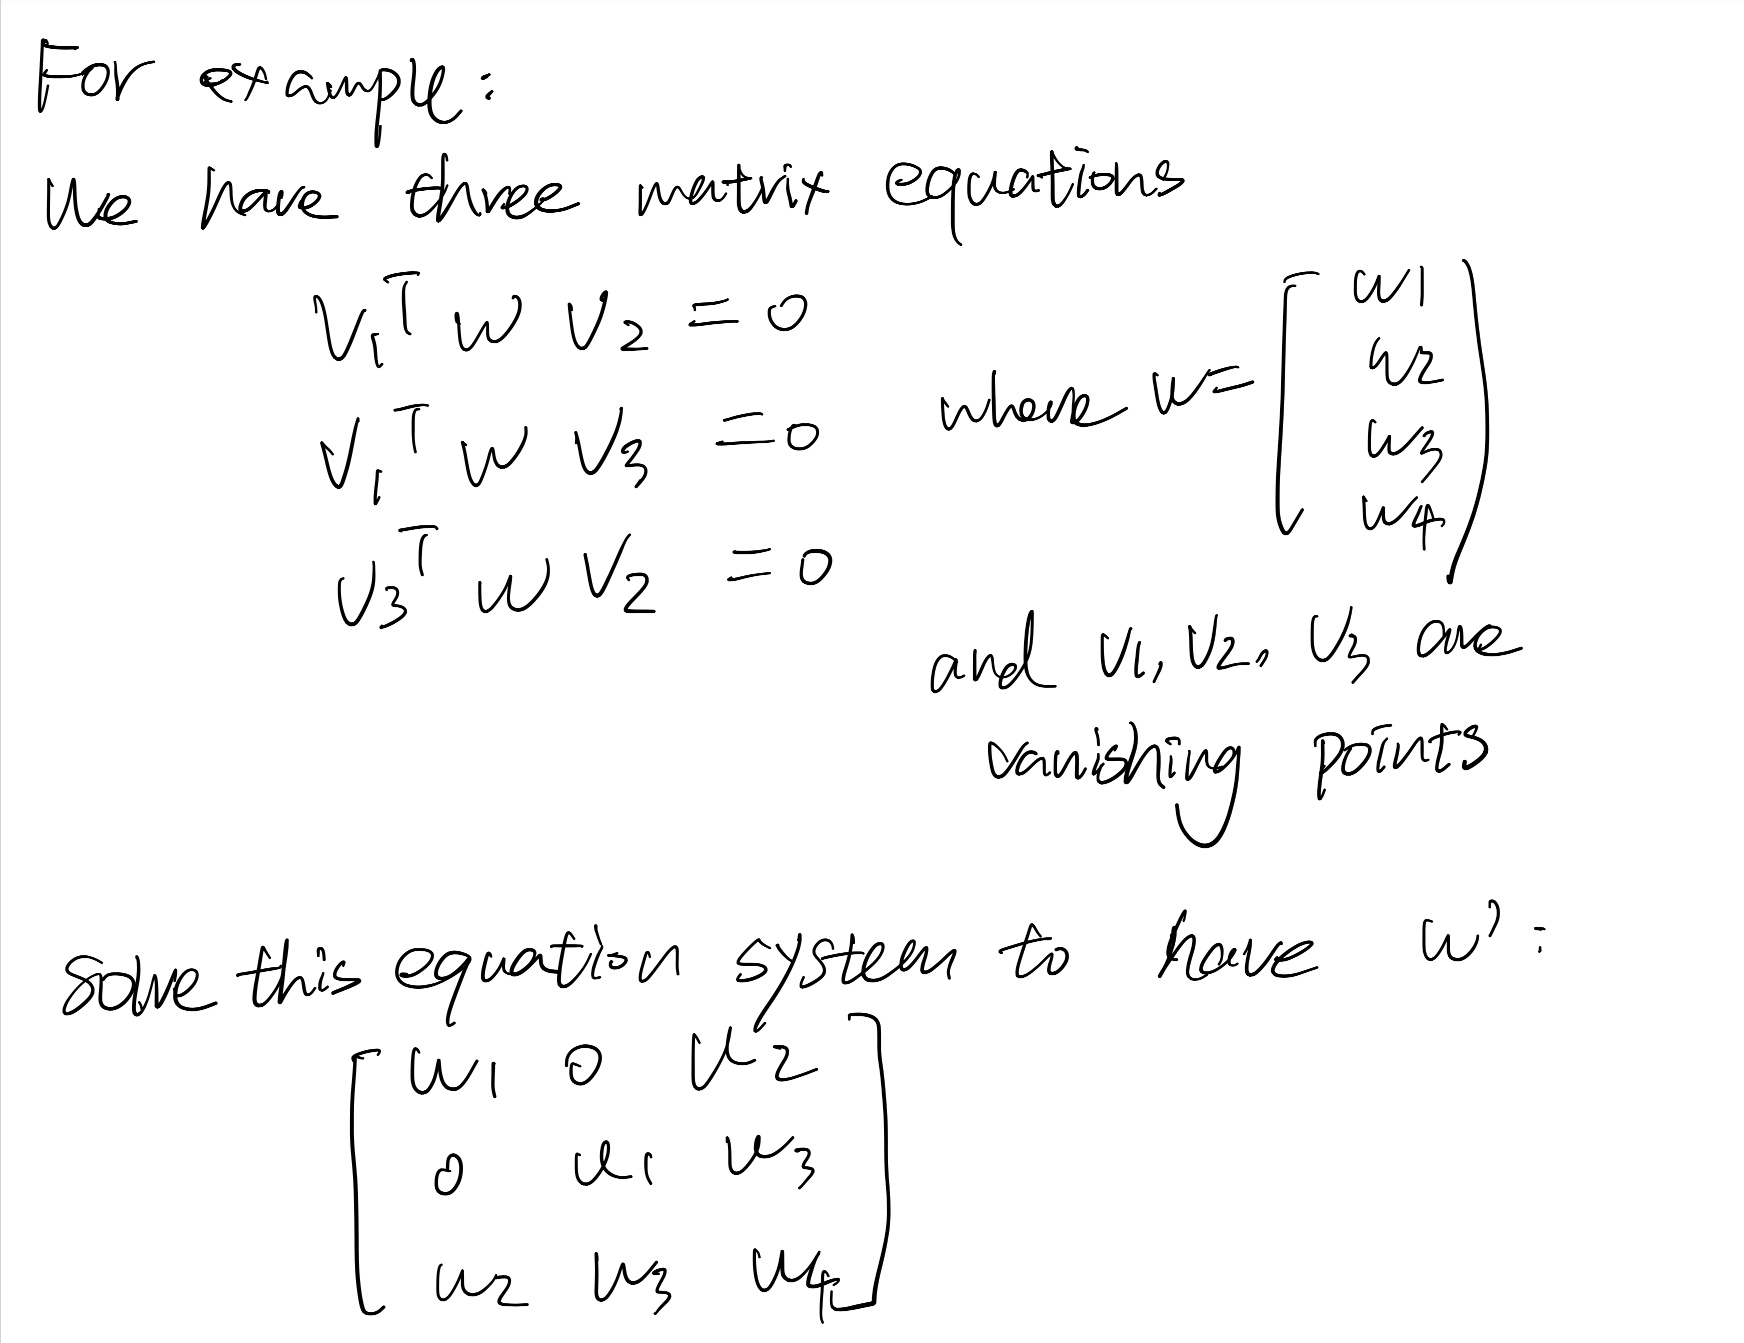 For example:
We have three matrix equations
V₁ᵀ w V₂ = 0
V₁ᵀ w V₃ = 0
V₃ᵀ w V₂ = 0
where w = [w1
w2
w3
w4]
and V1, V2, V3 are
vanishing points
Solve this equation system to have w':
[w1 0 w2
0 w1 w3
w2 w3 w4]